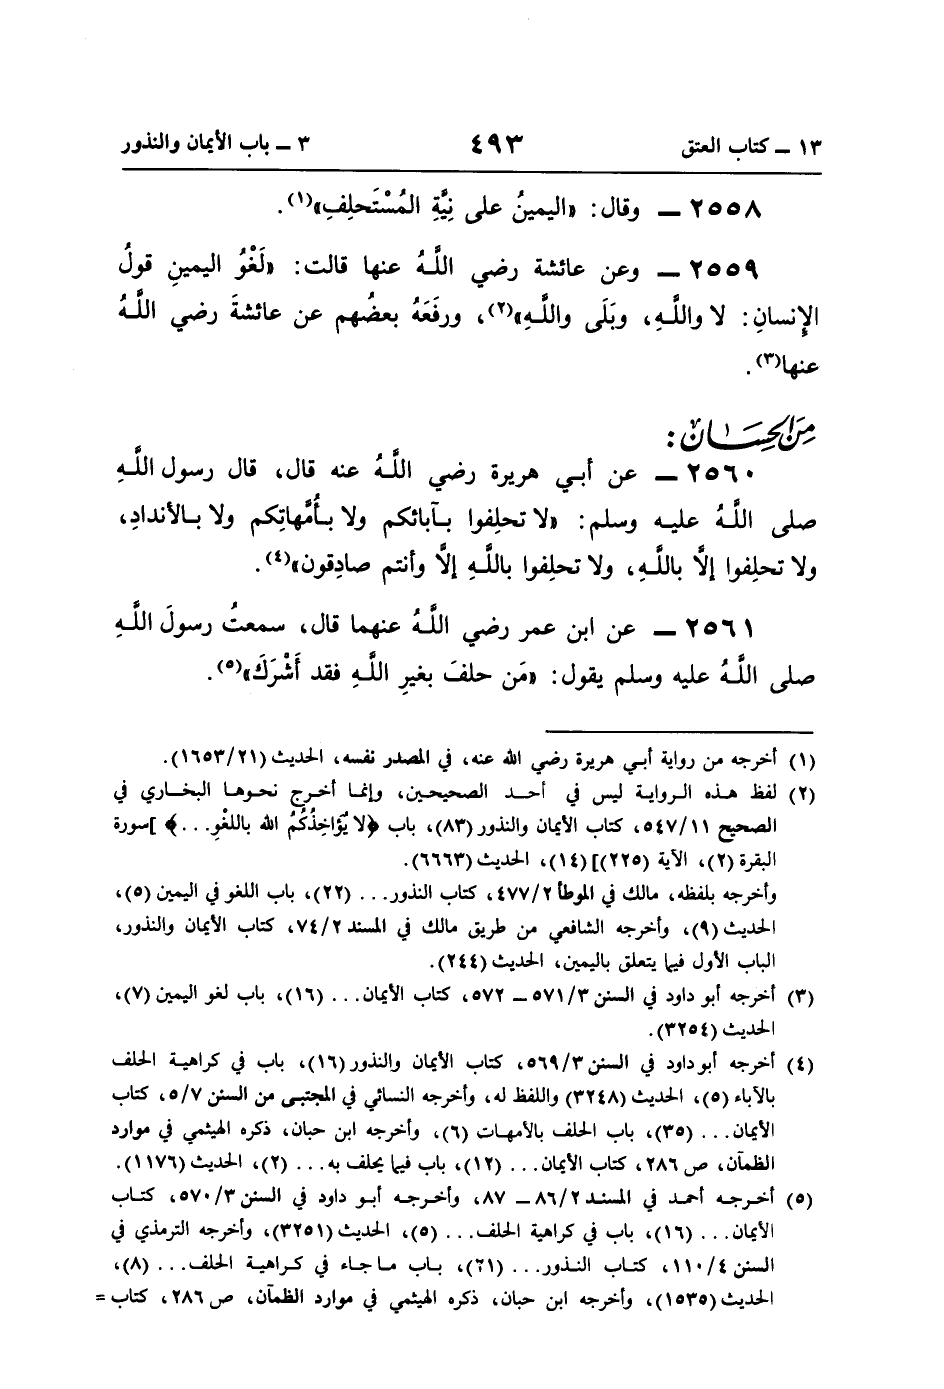 ١٣ ــ كتاب العتق ٤٩٣ ٣ ــ باب الأيمان والنذور
٢٥٥٨ ــ وقال: «اليمينُ على نِيَّةِ المُسْتَحلِفِ»(١).
٢٥٥٩ ــ وعن عائشة رضي اللَّهُ عنها قالت: «لَغْوُ اليمينِ قولُ
الإنسانِ: لا واللَّهِ، وبَلَى واللَّهِ»(٢)، ورفَعَهُ بعضُهم عن عائشةَ رضي اللَّهُ
عنها(٣).
مِنَ الحِسَان:
٢٥٦٠ ــ عن أبي هريرة رضي اللَّهُ عنه قال، قال رسول اللَّهِ
صلى اللَّهُ عليه وسلم: «لا تحلِفوا بآبائكم ولا بأُمَّهاتِكم ولا بالأندادِ،
ولا تحلِفوا إلَّا باللَّهِ، ولا تحلِفوا باللَّهِ إلَّا وأنتم صادِقون»(٤).
٢٥٦١ ــ عن ابن عمر رضي اللَّهُ عنهما قال، سمعتُ رسولَ اللَّهِ
صلى اللَّهُ عليه وسلم يقول: «مَن حلفَ بغيرِ اللَّهِ فقد أَشْرَكَ»(٥).
(١) أخرجه من رواية أبي هريرة رضي الله عنه، في المصدر نفسه، الحديث (١٦٥٣/٢١).
(٢) لفظ هذه الرواية ليس في أحد الصحيحين، وإنما أخرج نحوها البخاري في
الصحيح ٥٤٧/١١، كتاب الأيمان والنذور (٨٣)، باب ﴿لا يُؤَاخِذُكُمُ الله باللغْوِ...﴾ [سورة
البقرة (٢)، الآية (٢٢٥)] (١٤)، الحديث (٦٦٦٣).
وأخرجه بلفظه، مالك في الموطأ ٤٧٧/٢، كتاب النذور... (٢٢)، باب اللغو في اليمين (٥)،
الحديث (٩)، وأخرجه الشافعي من طريق مالك في المسند ٧٤/٢، كتاب الأيمان والنذور،
الباب الأول فيما يتعلق باليمين، الحديث (٢٤٤).
(٣) أخرجه أبو داود في السنن ٥٧١/٣ ــ ٥٧٢، كتاب الأيمان... (١٦)، باب لغو اليمين (٧)،
الحديث (٣٢٥٤).
(٤) أخرجه أبو داود في السنن ٥٦٩/٣، كتاب الأيمان والنذور (١٦)، باب في كراهية الحلف
بالآباء (٥)، الحديث (٣٢٤٨) واللفظ له، وأخرجه النسائي في المجتبى من السنن ٥/٧، كتاب
الأيمان... (٣٥)، باب الحلف بالأمهات (٦)، وأخرجه ابن حبان، ذكره الهيثمي في موارد
الظمآن، ص ٢٨٦، كتاب الأيمان... (١٢)، باب فيما يحلف به... (٢)، الحديث (١١٧٦).
(٥) أخرجه أحمد في المسند ٨٦/٢ ــ ٨٧، وأخرجه أبو داود في السنن ٥٧٠/٣، كتاب
الأيمان... (١٦)، باب في كراهية الحلف... (٥)، الحديث (٣٢٥١)، وأخرجه الترمذي في
السنن ١١٠/٤، كتاب النذور... (٢١)، باب ما جاء في كراهية الحلف... (٨)،
الحديث (١٥٣٥)، وأخرجه ابن حبان، ذكره الهيثمي في موارد الظمآن، ص ٢٨٦، كتاب =